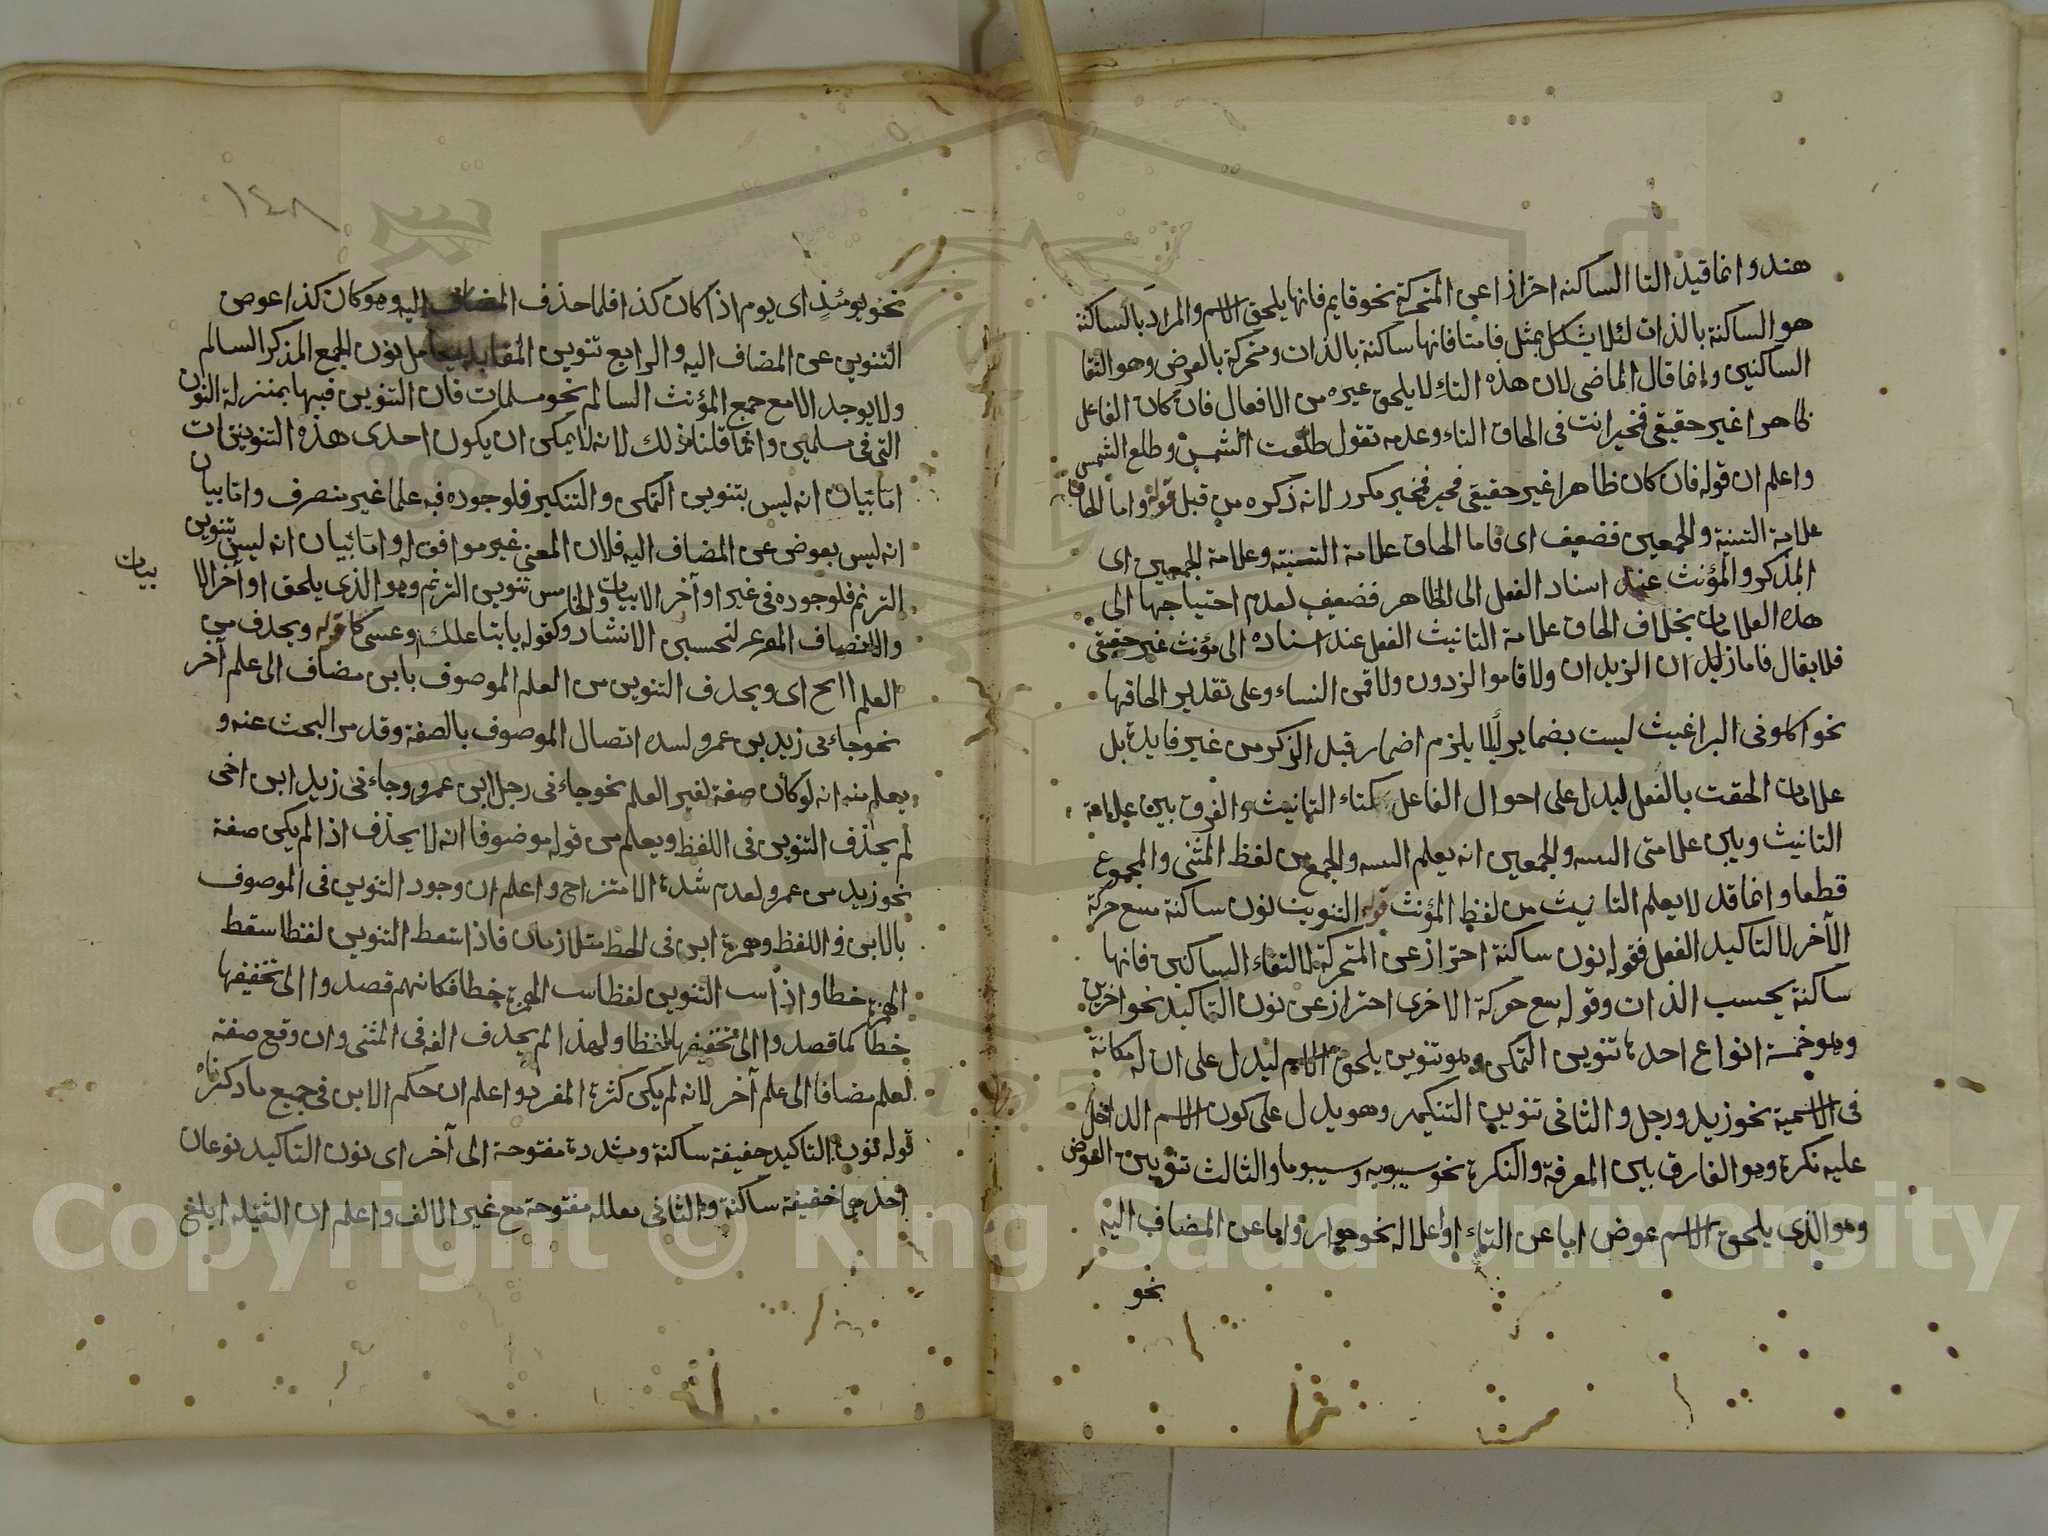 هند وانما قيد التا الساكنه احترازا عن المتحركة نحو قايم فانها يلحق الاسم والمراد بالساكنة
هو الساكنة بالذات لئلا يشكل بمثل قامتا فانها ساكنة بالذات ومتحركة بالعرض وهو التقا
الساكنين وانما قال الماضى لان هذه التاء لا يلحق غيره من الافعال فان كان الفاعل
ظاهرا غير حقيقى فمخير انت فى الحاق التاء وعدمه تقول طلعت الشمس وطلع الشمس
واعلم ان قوله فان كان ظاهرا غير حقيقى فمخير مكرر لانه ذكره من قبل قوله واما الحاق
علامة التثنية والجمعين فضعيف اى فاما الحاق علامة التثنيته وعلامة الجمعين اى
المذكر والمؤنث عند اسناد الفعل الى الظاهر فضعيف لعدم احتياجها الى
هذه العلامات بخلاف الحاق علامة التانيث الفعل عند اسناده الى مؤنث غير حقيقى
فلا يقال قاما الزيدان ولا قاموا الزدون ولا قمن النساء وعلى تقدير الحاقها
نحو اكلونى البراغيث ليست بضماير ليلا يلزم اضمار قبل الذكر من غير فايدة بل
علامات الحقت بالفعل ليدل على احوال الفاعل كتاء التانيث والفرق بين علامة
التانيث وبين علامتى التثنية والجمعين انه يعلم التثنية والجمع من لفظ المثنى والمجموع
قطعا وانما قد لا يعلم التانيث من لفظ المؤنث قوله التنوين نون ساكنة يتبع حركة
الآخر لا لتاكيد الفعل فقوله نون ساكنة احتراز عن المتحركة لا لتقاء الساكنين فانها
ساكنة بحسب الذات وقوله يتبع حركة الاخرى احتراز عن نون التاكيد نحو اضربن
وهو خمسة انواع احدها تنوين التمكن وهو تنوين يلحق الاسم ليدل على ان له مكانة
فى الاسمية نحو زيد ورجل والثانى تنوين التنكير وهو يدل على كون الاسم الداخل
عليه نكرة وهو الفارق بين المعرفة والنكرة نحو سيبويه وسيبويه والثالث تنوين العوض
وهو الذى يلحق الاسم عوض اما عن التاء او اعلاله نحو جوار واما عن المضاف اليه
نحو
١٤٨
نحو يومئذٍ اى يوم اذا كان كذا فلما حذف المضاف اليه وهو كان كذا عوض
التنوين عن المضاف اليه والرابع تنوين المقابلة يقابل نون الجمع المذكر السالم
ولا يوجد الا مع جمع المؤنث السالم نحو مسلمات فان التنوين فيها بمنزلة النون
التى فى مسلمين وانما قلنا ذلك لانه لا يمكن ان يكون احدى هذه التنوينات
اما بيان انه ليس بتنوين التمكن والتنكير فلوجوده فى علما غير منصرف واما بيان
انه ليس بعوض عن المضاف اليه فلان المعنى غير موافق له واما بيان انه ليس تنوين
الترنم فلوجوده فى غير اواخر الابيات والخامس تنوين الترنم وهو الذى يلحق اواخر الا
بيات
والانصاف المصرع لتحسين الانشاد كقوله يا ابتا علك وعسى كا قوله ويحذف من
العلم الخ اى ويحذف التنوين من العلم الموصوف بابن مضاف الى علم آخر
نحو جاءنى زيد بن عمرو لشدة اتصال الموصوف بالصفة وقد مر البحث عنه و
يعلم منه انه لو كان صفة لغير العلم نحو جاءنى رجل ابن عمرو وجاءنى زيد ابن اخى
لم يحذف التنوين فى اللفظ ويعلم من قوله موضوفا انه لا يحذف اذا لم يكن صفة
نحو زيد من عمرو لعدم شدة الامتزاج واعلم ان وجود التنوين فى الموصوف
بالابن فى اللفظ وهمزة ابن فى الخط متلازمان فاذا سقط التنوين لفظا سقط
الهمزة خطا واذا ثبت التنوين لفظا ثبت الهمزة خطا فكانهم قصدوا الى تخفيفها
خطا كما قصدوا الى تخفيفها لفظا ولهذا لم يحذف الفه فى المثنى وان وقع صفة
لعلم مضافا الى علم آخر لانه لم يكن كثرة المفرد واعلم ان حكم الابن فى جميع ما ذكرناه
قوله نون التاكيد خفيفة ساكنة ومشددة مفتوحة الى آخر اى نون التاكيد نوعان
احديها خفيفة ساكنة والثانى مفتوحة مع غير الالف واعلم ان الثقيله ابلغ